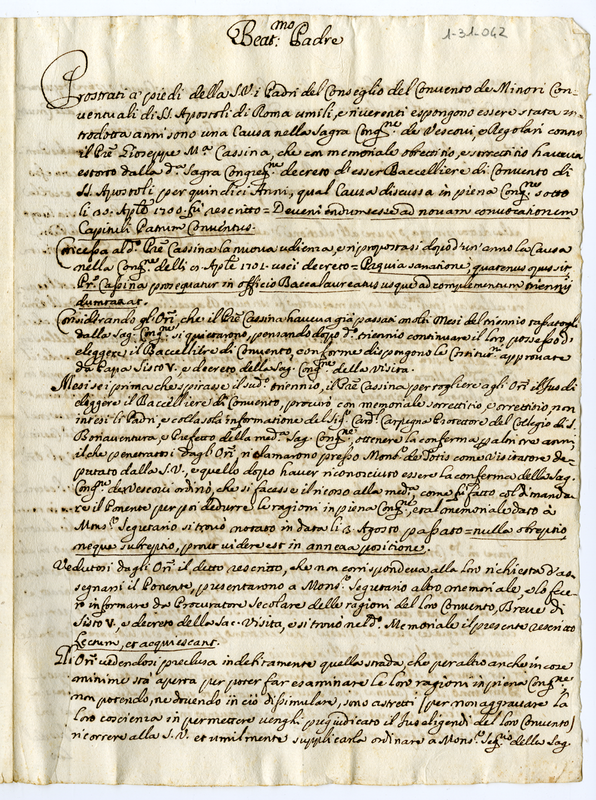 Beat.mo Padre
1-31-042
Prostrati a' piedi della S.V. i Padri del Conseglio del Convento de Minori Con-
ventuali di SS. Apostoli di Roma umili, e riverenti espongono essere stata in-
trodotta anni sono una Causa nella Sagra Cong.ne de Vescovi, e Regolari contro
il P.re Gioseppe M.a Cassina, che con memoriale obrettitio, e sorrettitio haveva
estorto dalla d.a Sagra Congreg.ne decreto di esser Baccelliere di Convento di
SS. Apostoli per quindici Anni, qual Causa discussa in piena Cong.ne sotto
li Aple 1700. fù rescritto = Deveniendum esse ad novam convocationem
Capituli Patrum Conventus.
Concessa al d.o P.re Cassina la nuova udienza, e ripropostasi dopò d'un' anno la Causa
nella Cong.ne delli Aple 1701. uscì decreto = Prævia sanatione, quatenus opus sit
P.r Cassina prosequatur in officio Baccalaureatus usque ad complementum triennij
dumtaxat.
Considerando gl'Ori, che il P.re Cassina haveva già passati molti Mesi del triennio
dalla Sag. Cong.ne si quietarono, pensando dopo d.o triennio continuare il loro possesso d'
eleggere il Baccelliere di Convento, conforme dispongono le Costitut.ni approvate
da Papa Sisto V. e decreto della Sag. Cong.ne della Visita.
Mesi sei prima che spirasse il sud.o triennio, il P.re Cassina per togliere agli Ori il Jus di
eleggere il Baccelliere di Convento, procurò con memoriale sorrettitio, e orrettitio, non
intesi li Padri, e colla sola informatione del Sig. Card. Carpegna Protettore del Collegio di S.
Bonaventura, e Prefetto della med.ma Sag. Cong.ne, ottenere la conferma p altri tre anni
il che penetratosi dagli Ori, reclamarono presso Mons. de Totis come Visitatore de-
putato dalla S.V. e quello dopo haver riconosciuto essere la conferma della Sag.
Cong.ne de Vescovi ordinò, che si facesse il ricorso alla med.ma, come fù fatto col dimanda-
re il Ponente per poi dedurre le ragioni in piena Cong.ne, et al memoriale dato à
Mons. Segretario si trovò notato in data li 3. Agosto passato = nulla obreptio
neque subreptio, prout videre est in annexa positione.
Vedutosi dagli Ori il detto rescritto, che non corrispondeva alla loro richiesta d'as-
segnarsi il Ponente, presentarono a Mons. Segretario altro memoriale, e lo fece-
ro informare da Procuratore Secolare delle ragioni del loro Convento, Breve di
Sisto V. e decreto della Sac. Visita, e si trovò nel d.o Memoriale il presente rescritto
Lectum, et acquiescant.
Gl'Ori vedendosi preclusa indebitamente quella strada, che per altro anche in cose
minime sta aperta per poter far esaminare le loro ragioni in piena Cong.ne
non potendo, ne dovendo in ciò dissimulare, sono astretti (per non aggravare la
loro coscienza in permettere venghi pregiudicato il Jus eligendi del loro Convento)
ricorrere alla S.V. et umilmente supplicarla ordinare a Mons. Seg.rio della Sag.